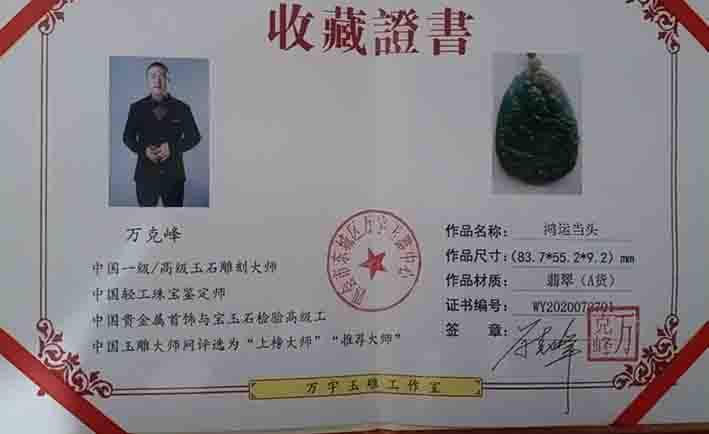 收藏證書
万克峰
中国一级/高级玉石雕刻大师
中国轻工珠宝鉴定师
中国贵金属首饰与宝玉石检验高级工
中国玉雕大师网评选为“上榜大师”“推荐大师”
作品名称: 鸿运当头
作品尺寸: (83.7*55.2*9.2) mm
作品材质: 翡翠 (A货)
证书编号: WY2020072701
签 章:
万克峰
万克峰
四会市东城区万宇玉器中心
万宇玉雕工作室